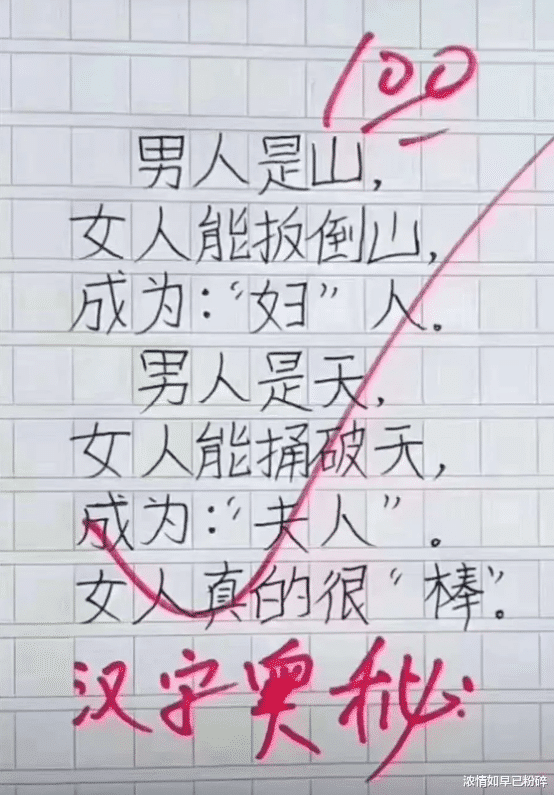 100
男人是山,
女人能扳倒山,
成为:“妇”人。
男人是天,
女人能捅破天,
成为:“夫人”。
女人真的很“棒”。
汉字奥秘
浓情如早已粉碎